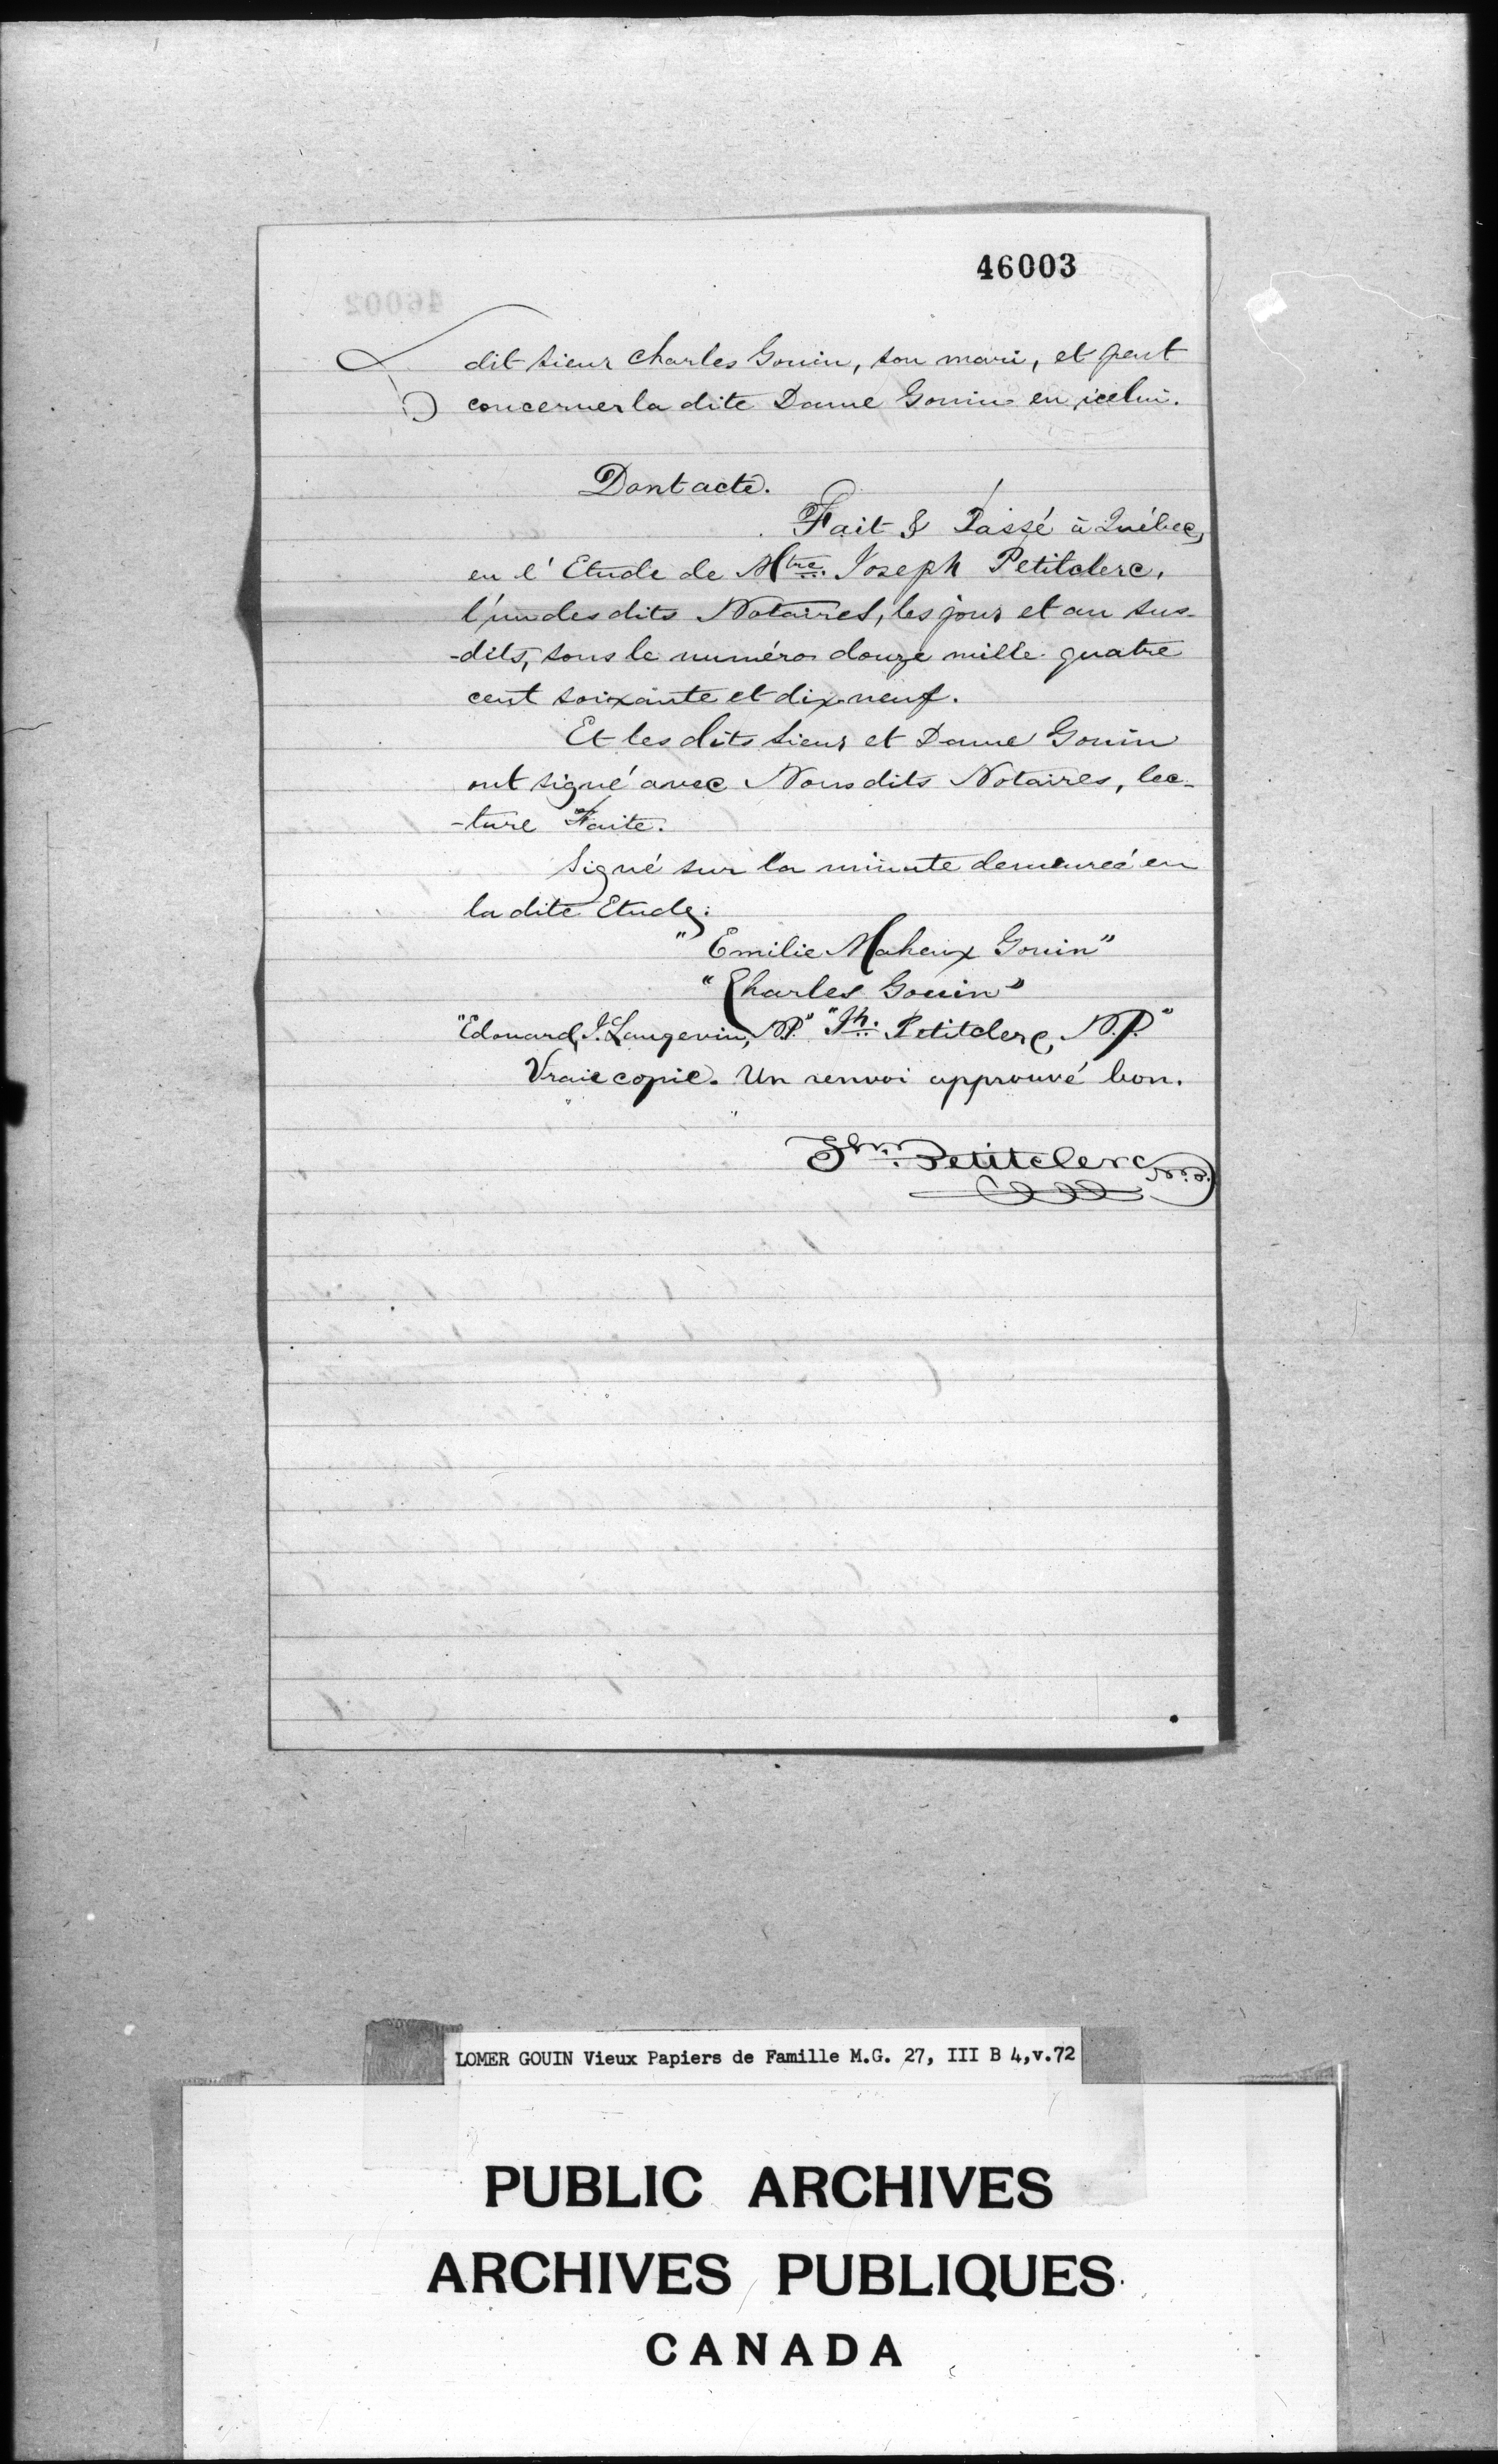 46003
46002
dit sieur Charles Gouin, son mari, et peut
concerner la dite Dame Gouin en icelui.
Dont acte.
Fait & Passé à Québec,
en l'Etude de Mtre. Joseph Petitclerc,
l'un des dits Notaires, les jour et an sus-
-dits, sous le numéro douze mille quatre
cent soixante et dix neuf.
Et les dits Sieur et Dame Gouin
ont signé avec Nous dits Notaires, lec-
-ture Faite.
Signé sur la minute demeurée en
la dite Etude:
"Emilie Maheux Gouin"
"Charles Gouin"
"Edouard J. Langevin, N.P." "Jh. Petitclerc, N.P."
Vraie copie. Un renvoi approuvé bon.
Jh. Petitclerc N.P.
LOMER GOUIN Vieux Papiers de Famille M.G. 27, III B 4,v.72
PUBLIC ARCHIVES
ARCHIVES PUBLIQUES
CANADA